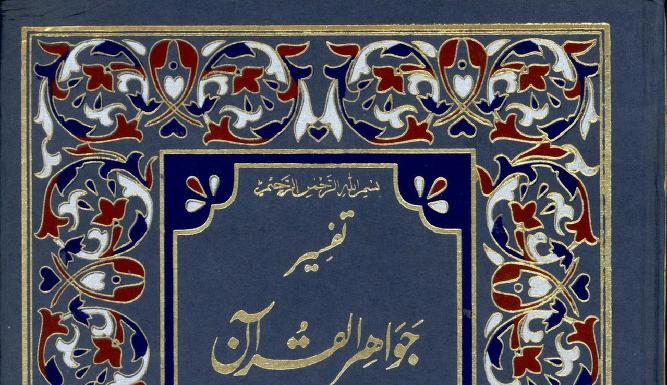 بسم الله الرحمن الرحیم
تفسیر
جواهر القرآن